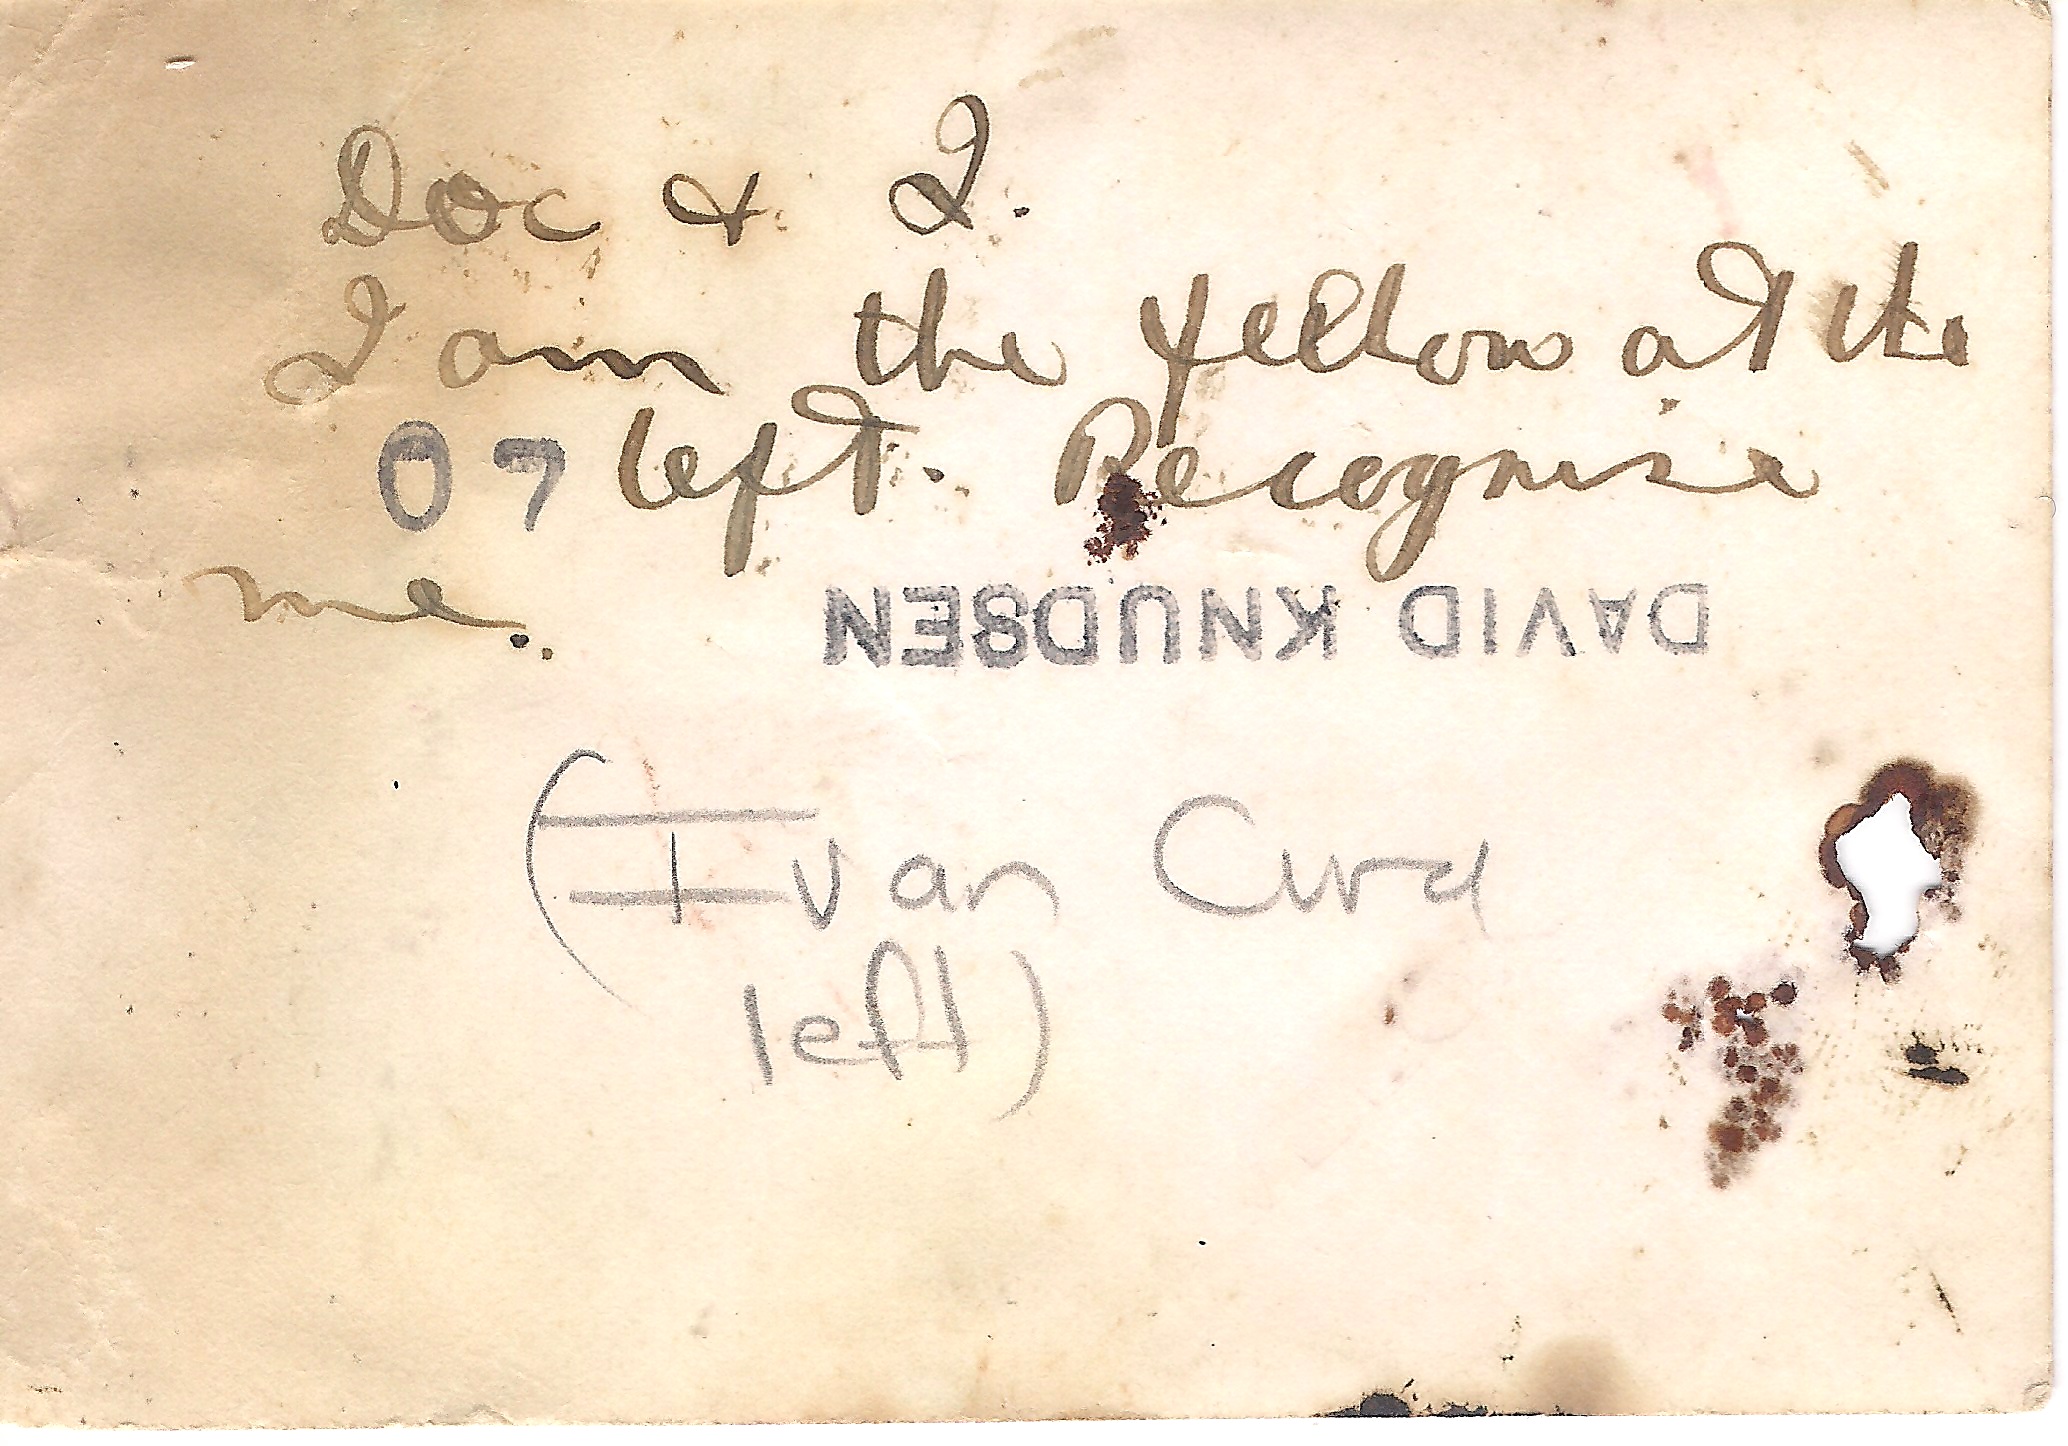 Doc & I.
I am the fellow at the
07 left. Recognise
me.
DAVID KNUDSEN
(Ivan Curd
left)